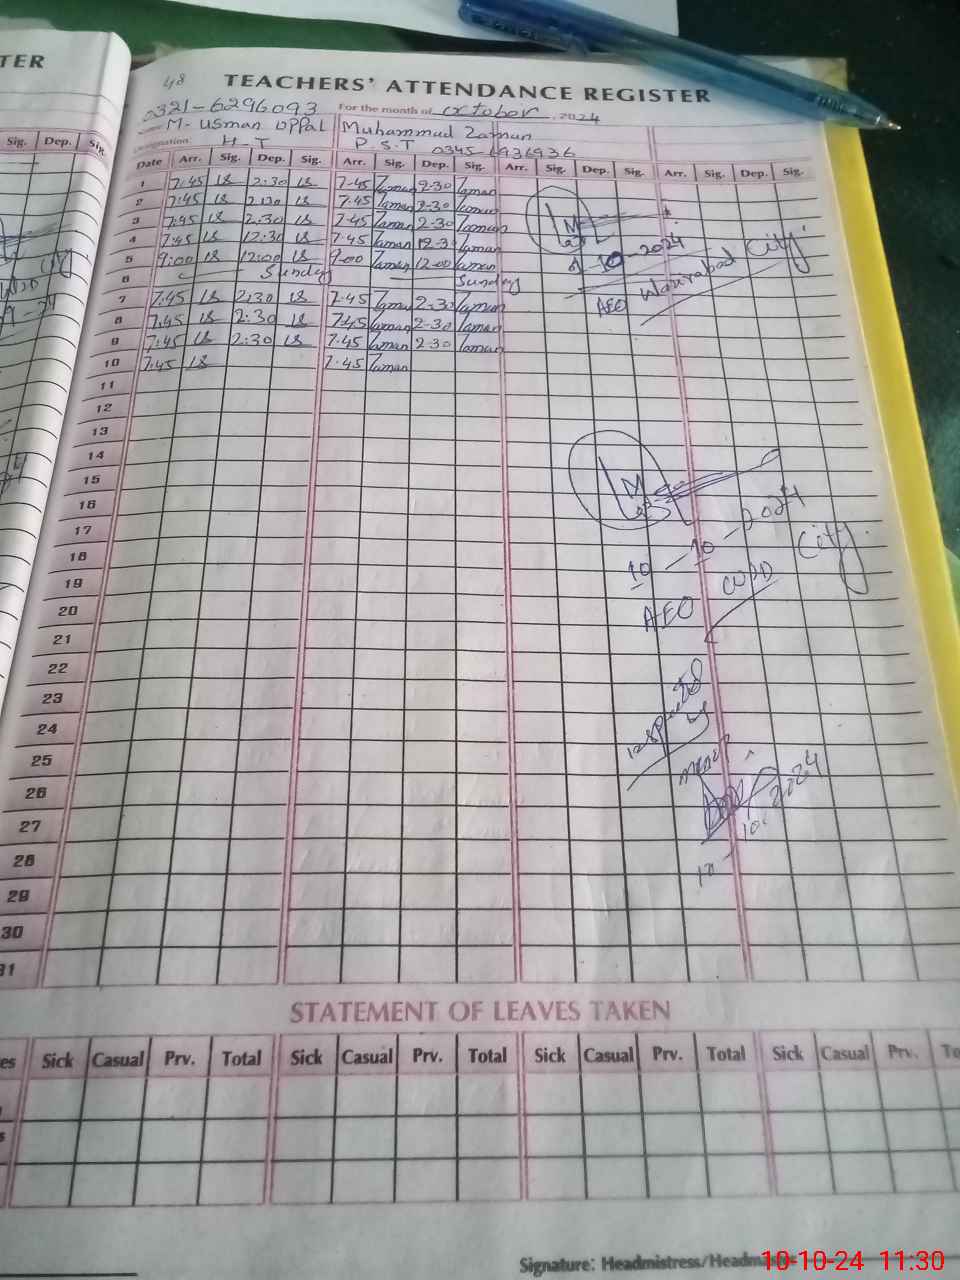 TER
48
TEACHERS' ATTENDANCE REGISTER
0321-6296093 For the month of october, 2024
Name M- usman uppal Muhammad Zaman
Designation H-T P.S.T 0345-6936936
Sig. Dep. Sig. Date Arr. Sig. Dep. Sig. Arr. Sig. Dep. Sig. Arr. Sig. Dep. Sig. Arr. Sig. Dep. Sig.
1 7:45 2:30 7-45 Zaman 2-30 Zaman
2 7:45 2:30 7:45 Zaman 2-30 Zaman
3 7:45 2:30 7-45 Zaman 2-30 Zaman
4 7:45 12:30 7-45 Zaman 12-30 Zaman
5 9:00 12:00 9-00 Zaman 12-00 Zaman
6 Sunday Sunday
7 7:45 2:30 7-45 Zaman 2-30 Zaman
8 7:45 2:30 7:45 Zaman 2-30 Zaman
9 7:45 2:30 7-45 Zaman 2-30 Zaman
10 7:45 7-45 Zaman
10-2024
AEO Wazirabad City
11
12
13
14
15
16
17
18
19
20
21
22
23
24
25
26
27
28
29
30
31
10-10-2024
AEO WZD City
by
10.10.2024
STATEMENT OF LEAVES TAKEN
es Sick Casual Prv. Total Sick Casual Prv. Total Sick Casual Prv. Total Sick Casual Prv. To
s
Signature: Headmistress/Headmaster
10-10-24 11:30